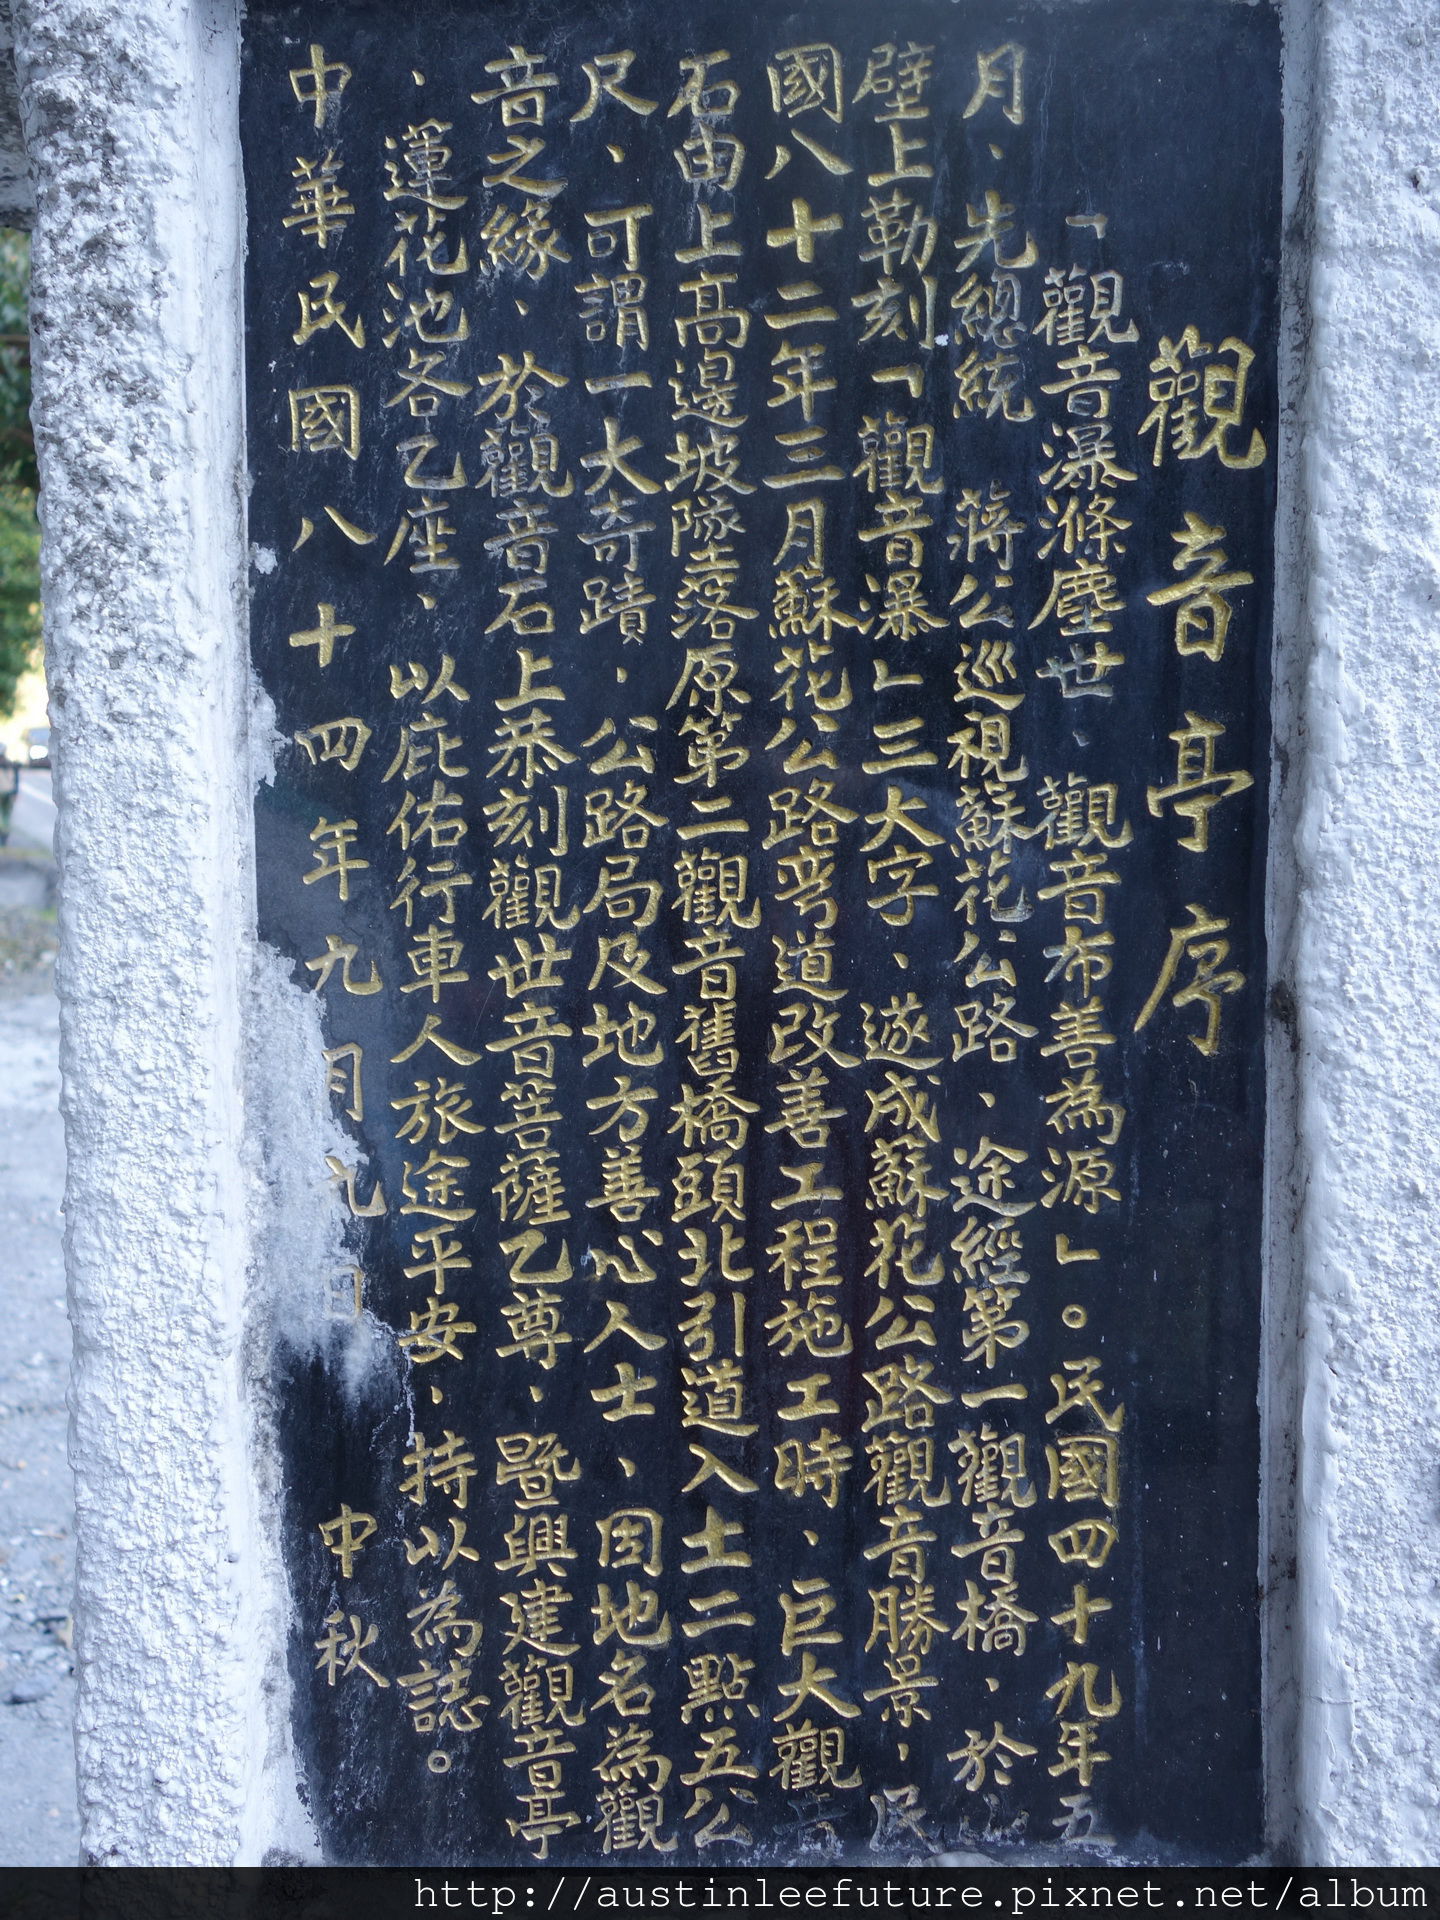 觀音亭序
「觀音瀑滌塵世、觀音布善為源」。民國四十九年五
月、先總統 蔣公巡視蘇花公路、途經第一觀音橋、於山
壁上勒刻「觀音瀑」三大字、遂成蘇花公路觀音勝景、民
國八十二年三月蘇花公路彎道改善工程施工時、巨大觀音
石由上高邊坡隊落原第二觀音舊橋頭北引道入土二點五公
尺、可謂一大奇蹟、公路局及地方善心人士、因地名為觀
音之緣、於觀音石上恭刻觀世音菩薩乙尊、暨興建觀音亭
、蓮花池各乙座、以庇佑行車人旅途平安、持以為誌。
中華民國八十四年九月九日 中秋
http://austinleefuture.pixnet.net/album